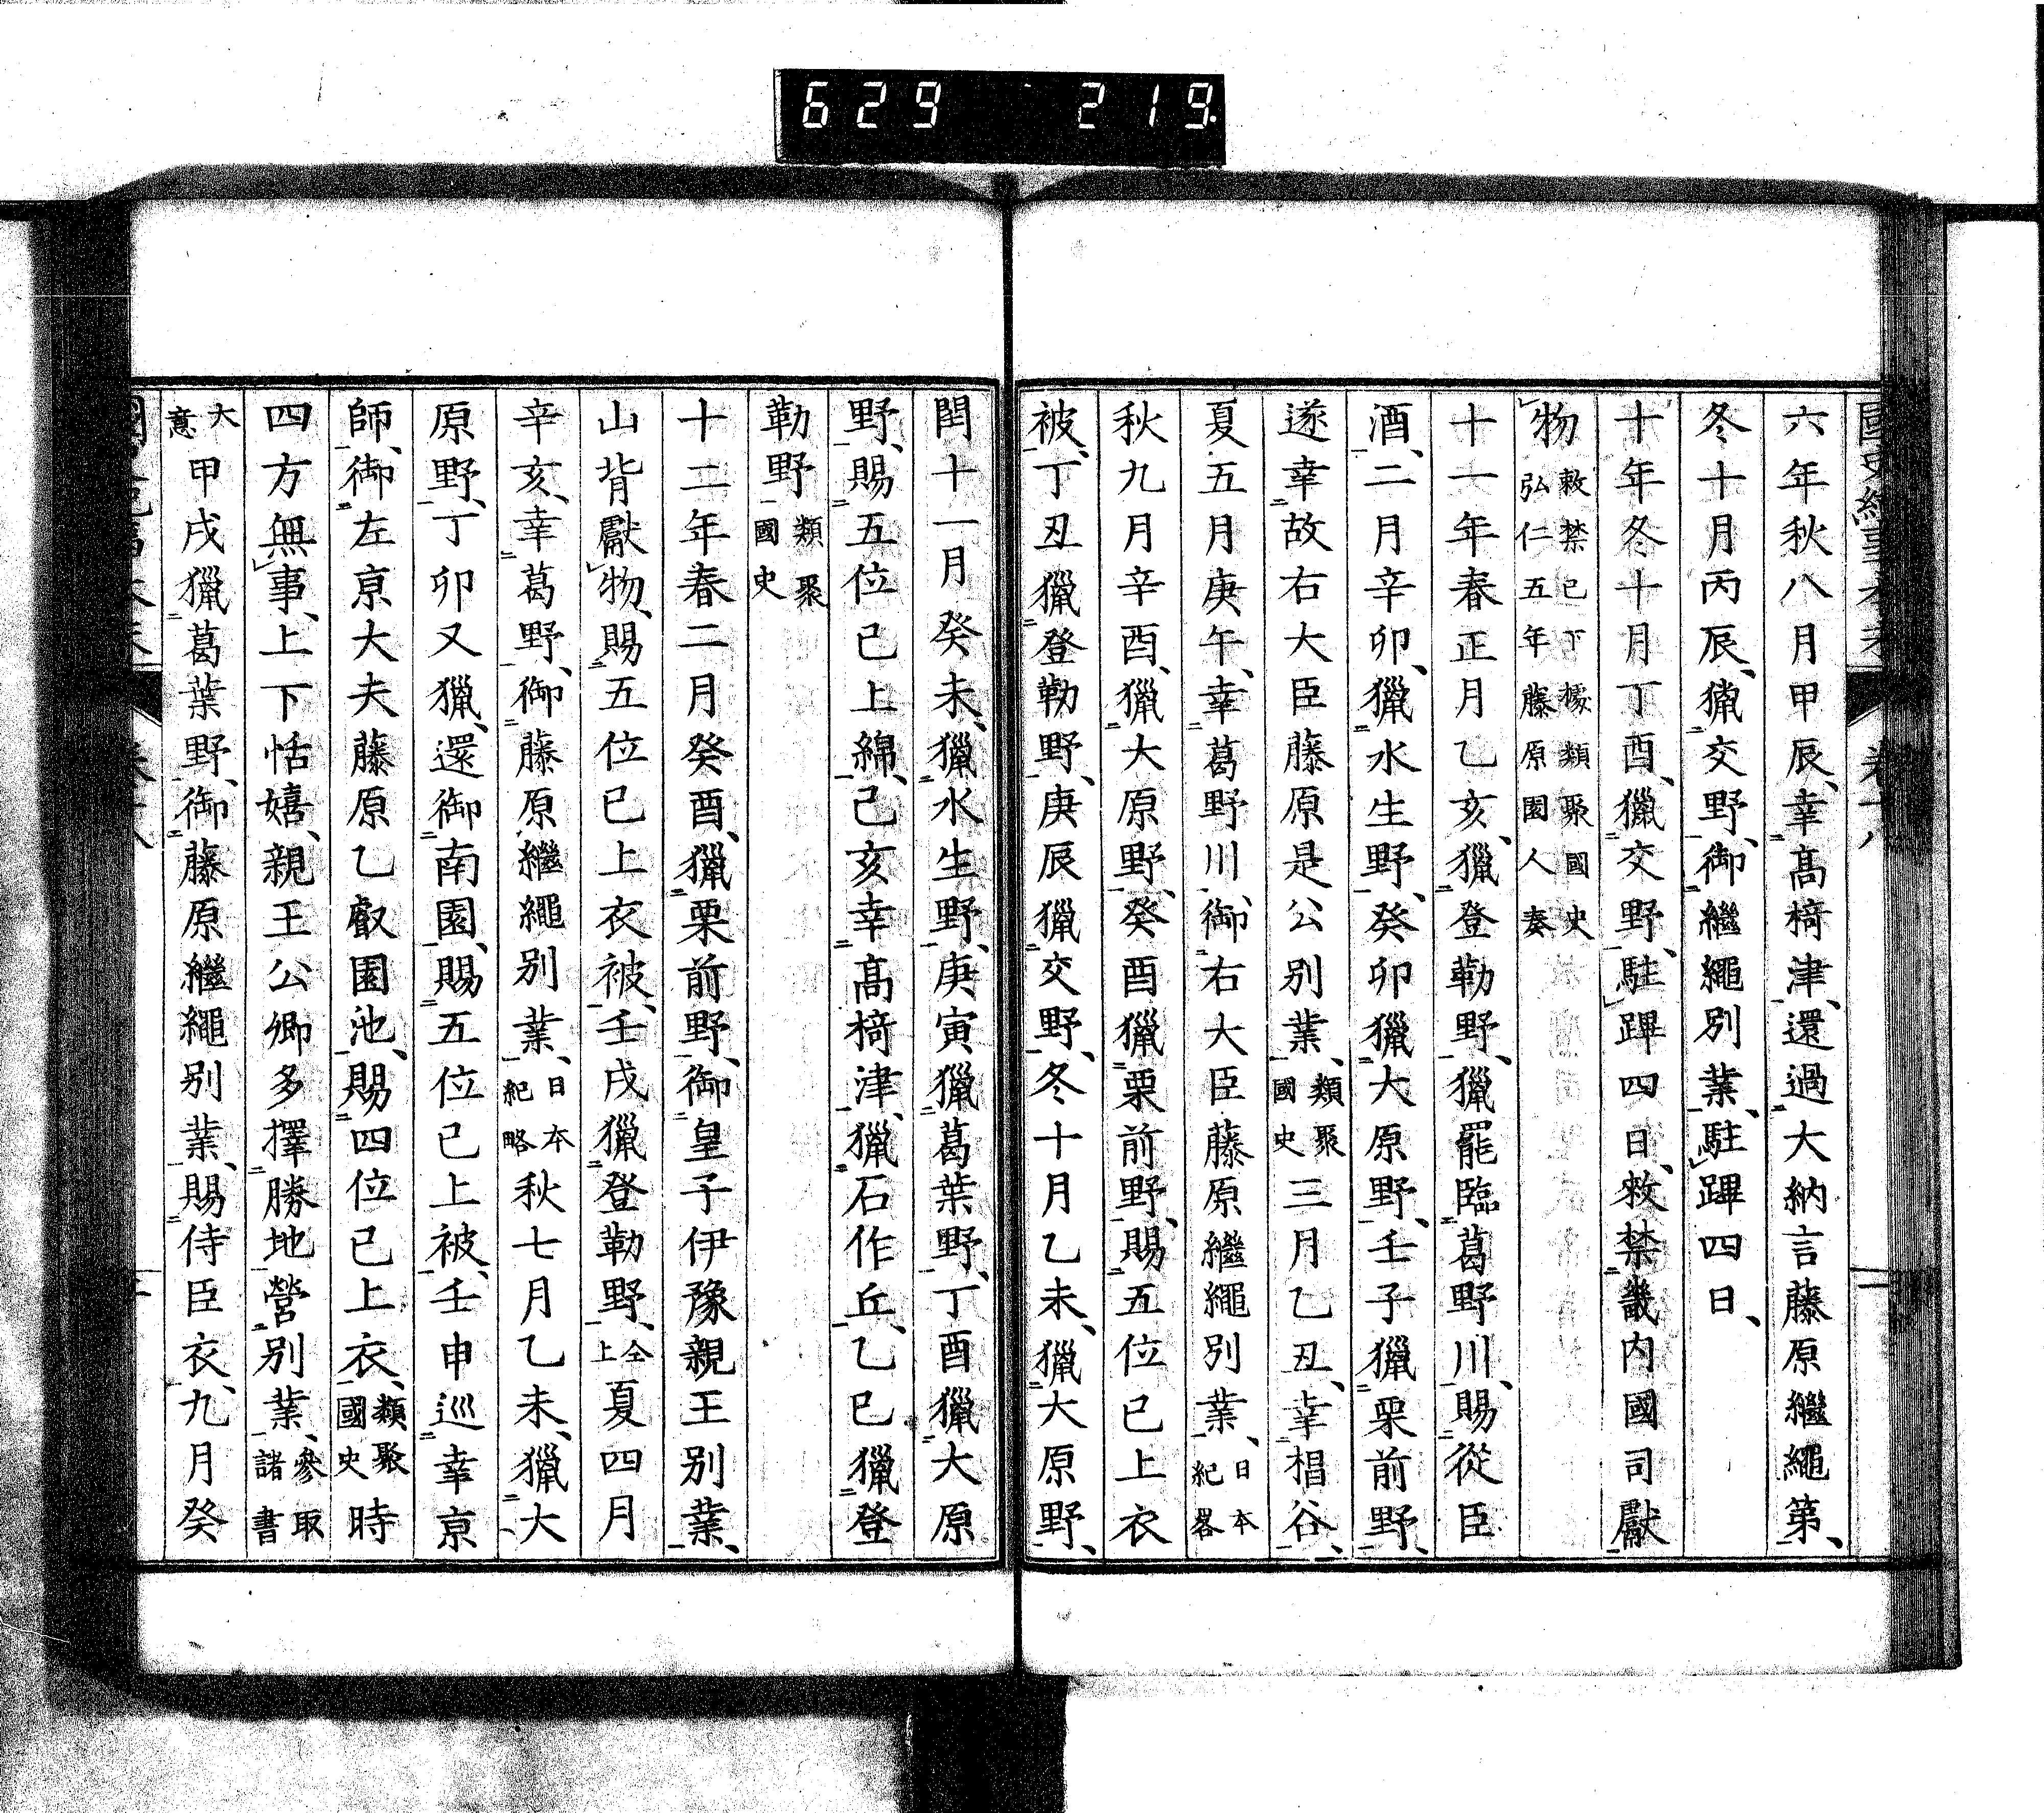 629 219
六年秋八月甲辰、幸高椅津、還過大納言藤原繼繩第、
冬十月丙辰、獵交野、御繼繩別業、駐蹕四日、
十年冬十月丁酉、獵交野、駐蹕四日、敕禁畿内國司獻
物敕禁已下據類聚國史弘仁五年藤原園人奏
十一年春正月乙亥、獵登勒野、獵罷臨葛野川、賜從臣
酒、二月辛卯、獵水生野、癸卯獵大原野、壬子獵栗前野、
遂幸故右大臣藤原是公別業、類聚國史三月乙丑、幸椙谷、
夏五月庚午、幸葛野川、御右大臣藤原繼繩別業、日本紀畧
秋九月辛酉、獵大原野、癸酉獵栗前野、賜五位已上衣
被、丁丑獵登勒野、庚辰獵交野、冬十月乙未、獵大原野、
閏十一月癸未、獵水生野、庚寅獵葛葉野、丁酉獵大原
野、賜五位已上綿、己亥幸高椅津、獵石作丘、乙巳獵登
勒野類聚國史
十二年春二月癸酉、獵栗前野、御皇子伊豫親王別業、
山背獻物、賜五位已上衣被、壬戌獵登勒野、仝上夏四月
辛亥、幸葛野、御藤原繼繩別業、日本紀略秋七月乙未、獵大
原野、丁卯又獵、還御南園、賜五位已上被、壬申巡幸京
師、御左京大夫藤原乙叡園池、賜四位已上衣、類聚國史時
四方無事、上下恬嬉、親王公卿多擇勝地營別業、參取諸書
大意甲戌獵葛葉野、御藤原繼繩別業、賜侍臣衣、九月癸